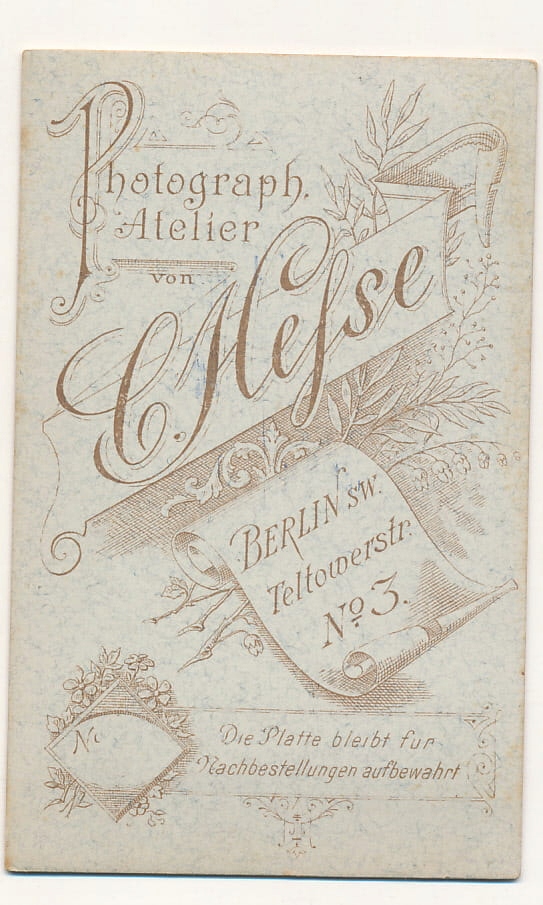 Photograph.
Atelier
von
C. Heſse
BERLIN SW.
Teltowerstr.
No 3.
No
Die Platte bleibt fur
Nachbestellungen aufbewahrt